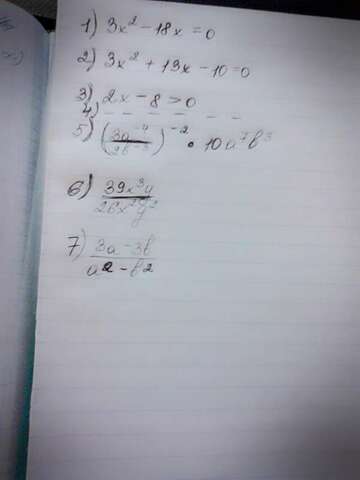 1) 3x² - 18x = 0
2) 3x² + 13x - 10 = 0
3) 2x - 8 > 0
4) - - - - - -
5) (3a⁻⁴ / 2b)⁻² • 10a⁷b³
6) 39x³y / 26x²y²
7) 3a - 3b / a² - b²